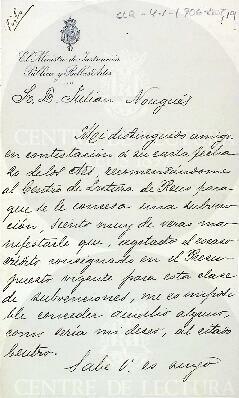 CLR-4-1-1706-
El Ministro de Instrucción
Pública y Bellas Artes
S. D. Julián Nougués
Mi distinguido amigo:
en contestación á su carta fecha
20 de los ctes, recomendándome
al Centro de Lectura de Reus para
que se le conceda una subven-
ción, siento muy de veras ma-
nifestarle que, agotado el escaso
crédito consignado en el Presu-
puesto vigente para esta clase
de subvenciones, me es imposi-
ble conceder auxilio alguno,
como sería mi deseo, al citado
Centro.
Sabe V. es suyo
CENTRE DE LECTURA